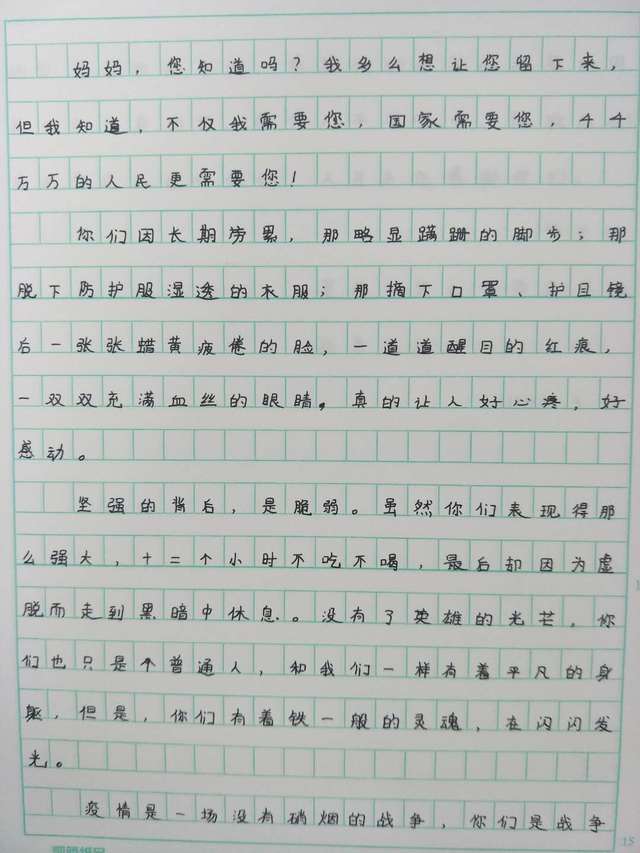 妈妈，您知道吗？我多么想让您留下来，
但我知道，不仅我需要您，国家需要您，44
万万的人民更需要您！
你们因长期劳累，那略显蹒跚的脚步；那
脱下防护服湿透的衣服；那摘下口罩、护目镜
后一张张蜡黄疲倦的脸，一道道醒目的红痕，
一双双充满血丝的眼睛。真的让人好心疼，好
感动。
坚强的背后，是脆弱。虽然你们表现得那
么强大，十二个小时不吃不喝，最后却因为虚
脱而走到黑暗中休息。没有了英雄的光芒，你
们也只是个普通人，和我们一样有着平凡的身
躯，但是，你们有着铁一般的灵魂，在闪闪发
光。
疫情是一场没有硝烟的战争，你们是战争
15